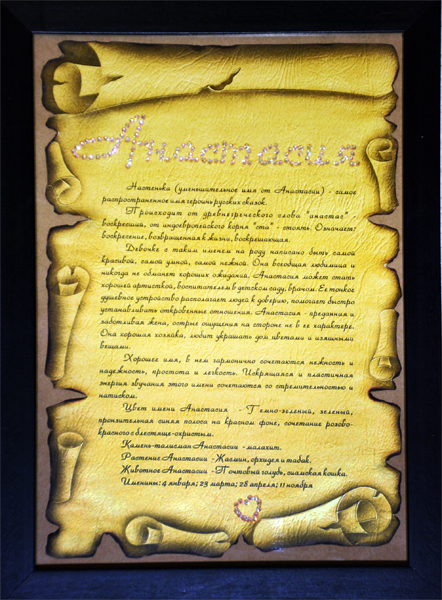 Анастасия
Настенька (уменьшительное имя от Анастасии) - самое
распространенное имя героинь русских сказок.
Происходит от древнегреческого слова "анастас" -
воскресший, от индоевропейского корня "ста" - стоять. Означает:
воскресение, возвращенная к жизни, воскресающая.
Девочке с таким именем на роду написано быть самой
красивой, самой умной, самой нежной. Она всеобщая любимица и
никогда не обманет хороших ожиданий. Анастасия может стать
хорошей артисткой, воспитателем в детском саду, врачом. Ее тонкое
душевное устройство располагает людей к доверию, помогает быстро
устанавливать откровенные отношения. Анастасия - преданная и
заботливая жена, острые ощущения на стороне не в ее характере.
Она хорошая хозяйка, любит украшать дом цветами и изящными
вещами.
Хорошее имя, в нем гармонично сочетаются нежность и
надежность, простота и легкость. Искрящаяся и пластичная
энергия звучания этого имени сочетаются со стремительностью и
натиском.
Цвет имени Анастасия - Темно-зеленый, зеленый,
пронзительная синяя полоса на красном фоне, сочетание розово-
красного с блестяще-охристым.
Камень-талисман Анастасии - малахит.
Растение Анастасии - Жасмин, орхидея и табак.
Животное Анастасии - Почтовый голубь, сиамская кошка.
Именины: 4 января; 23 марта; 28 апреля; 11 ноября